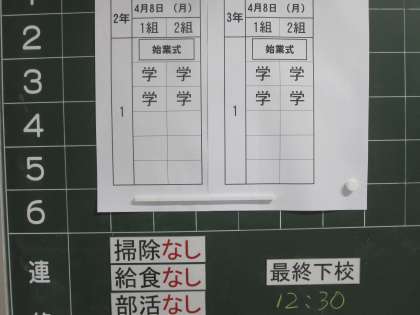 2年 4月8日 (月) 3年 4月8日 (月)
1組 2組 1組 2組
2 始業式 始業式
3 学 学 学 学
1 学 学 1 学 学
4
5
6
掃除なし
連 給食なし 最終下校
部活なし 12:30